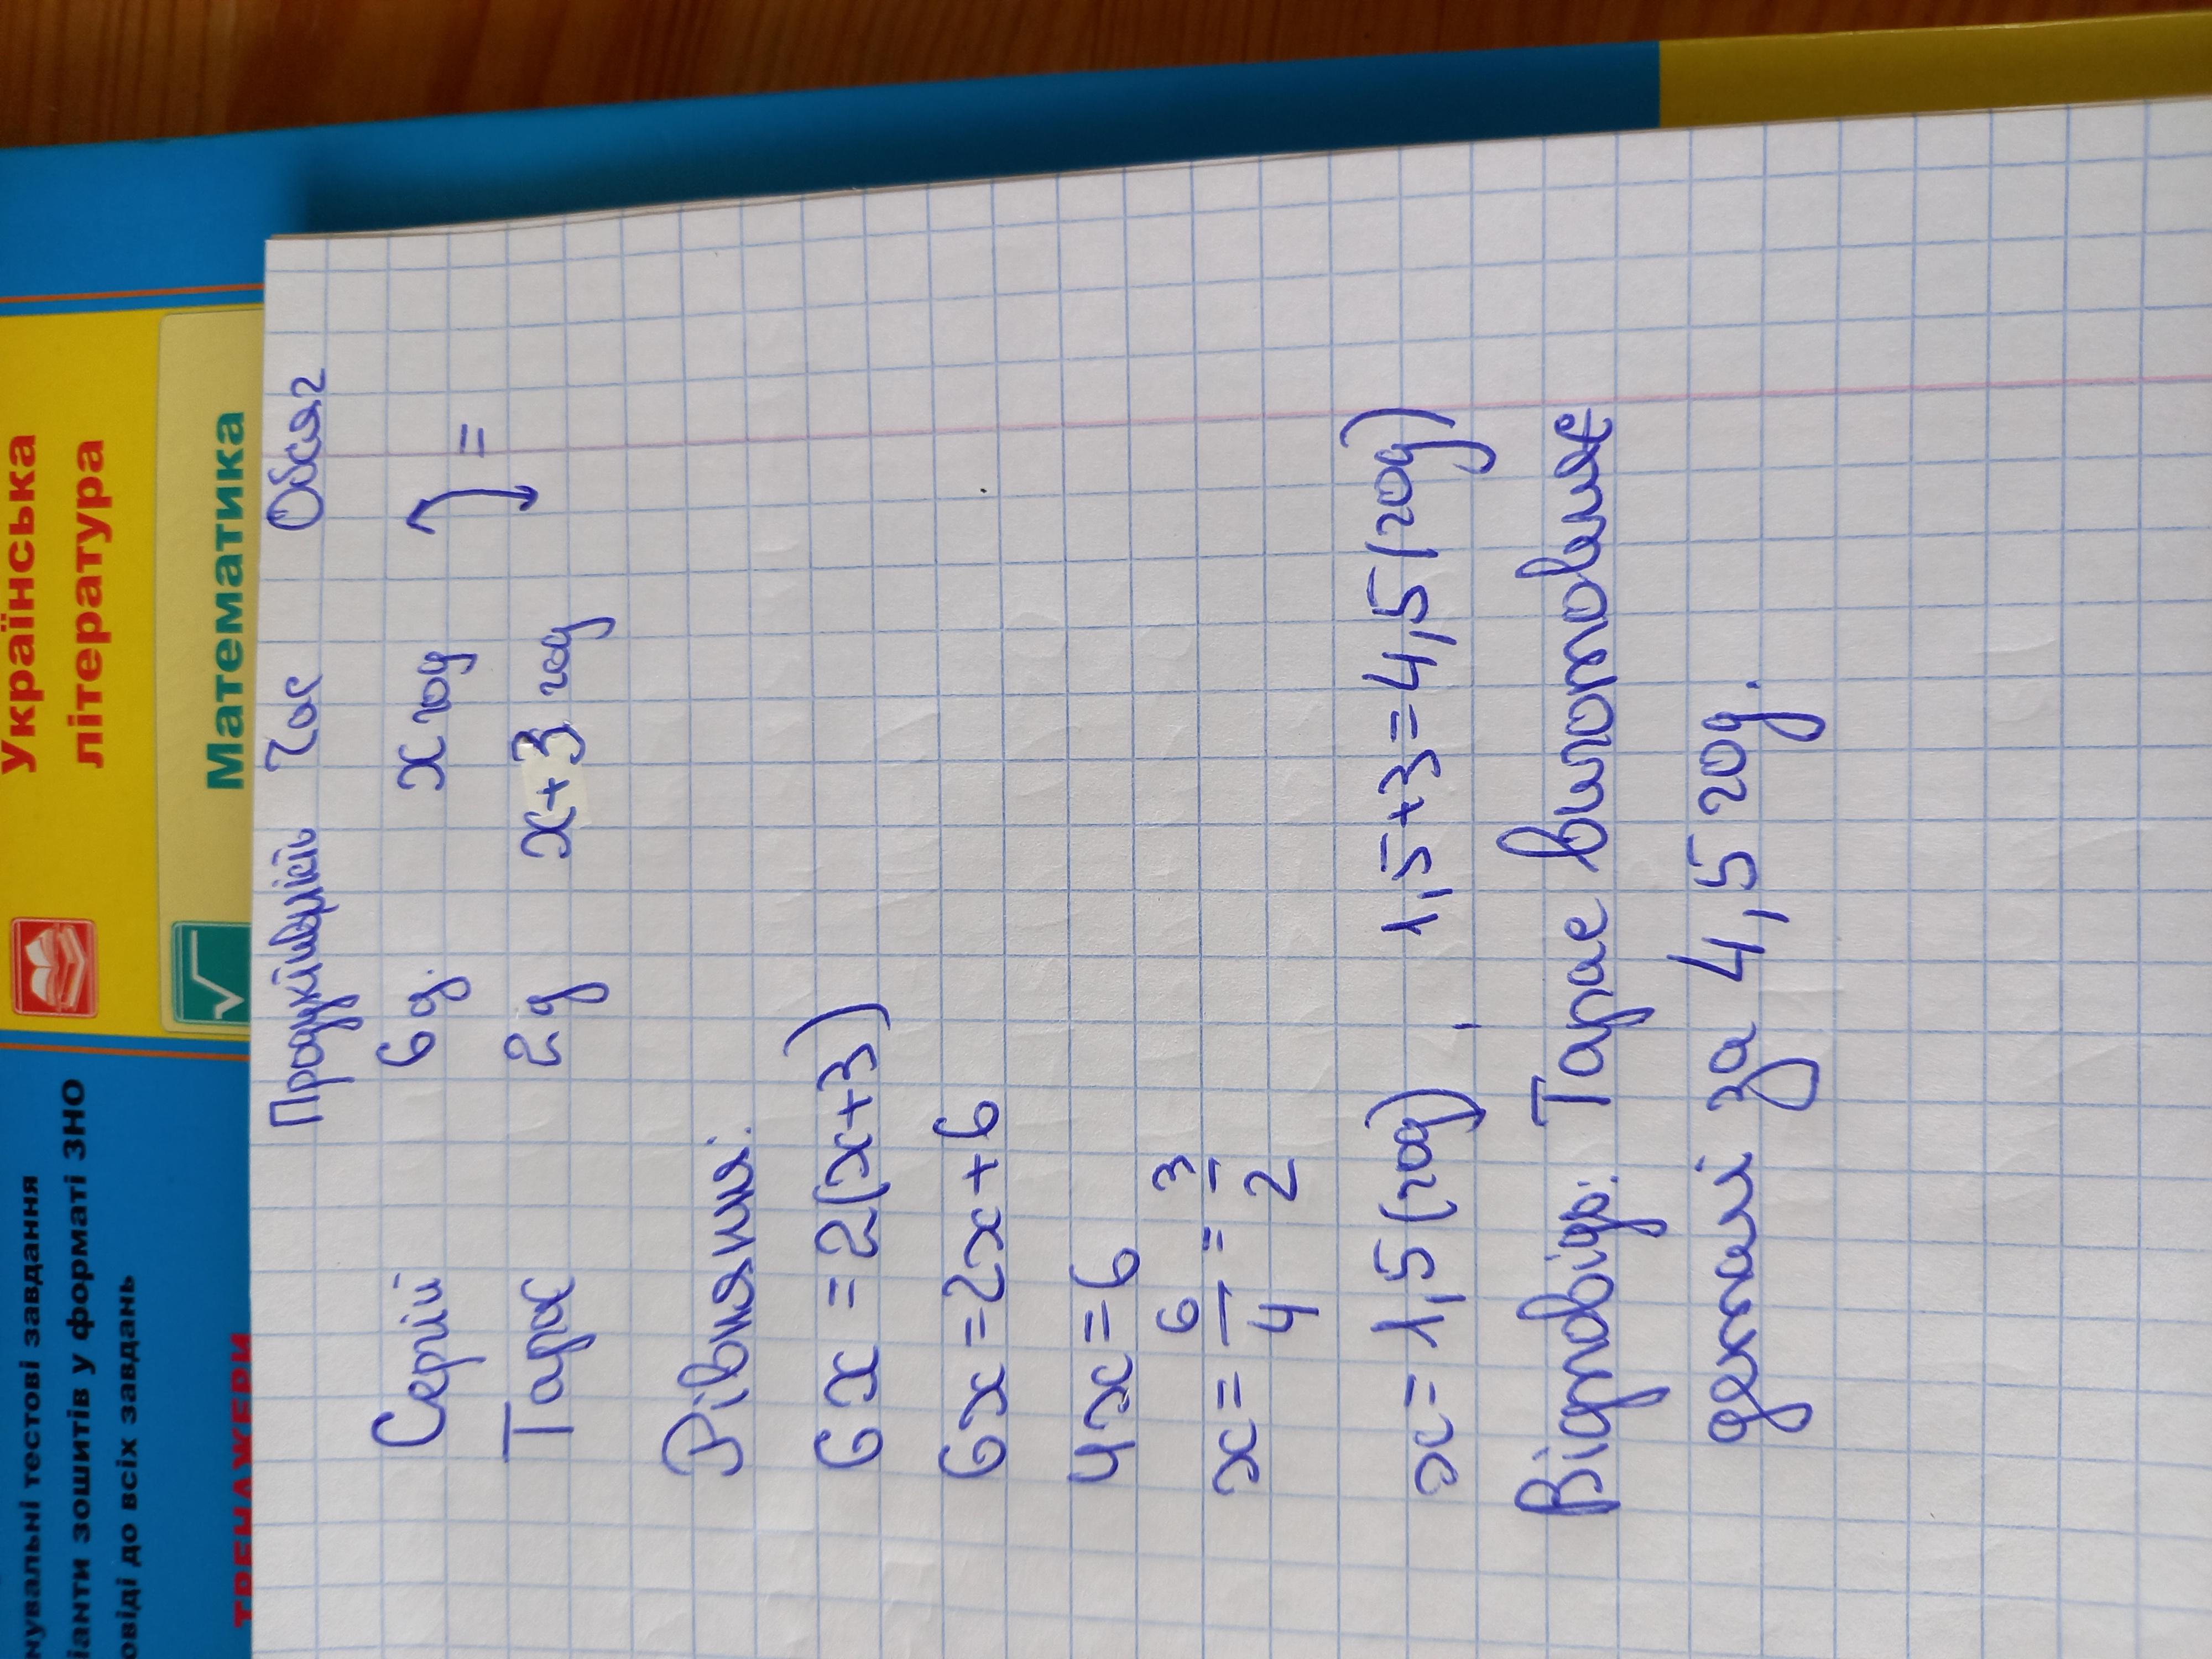 Українська
література
Математика
нувальні тестові завдання
іанти зошитів у форматі ЗНО
овіді до всіх завдань
ТРЕНАЖЕРИ
Продуктивність Час Обсяг
Сергій 6 д. x год
Тарас 2 д x+3 год =
Рівняння:
6x = 2(x+3)
6x = 2x + 6
4x = 6
x = 6/4 = 3/2
x = 1,5 (год) 1,5+3=4,5 (год)
Відповідь: Тарас виготовить
деталі за 4,5 год.